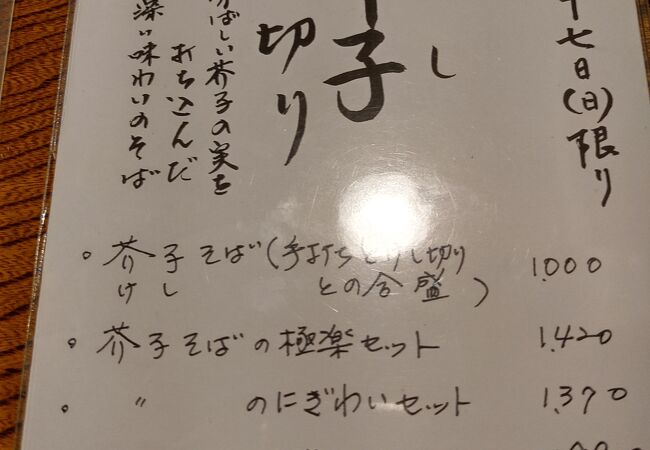 十七日(日)限り
芥子
し
切り
ばしい芥子の実を
打ち込んだ
深い味わいのそば
◦ 芥子そば(手打ちとけし切り 1.000
けし との合盛)
◦ 芥子そばの極楽セット 1.420
◦ 〃 のにぎわいセット 1.370